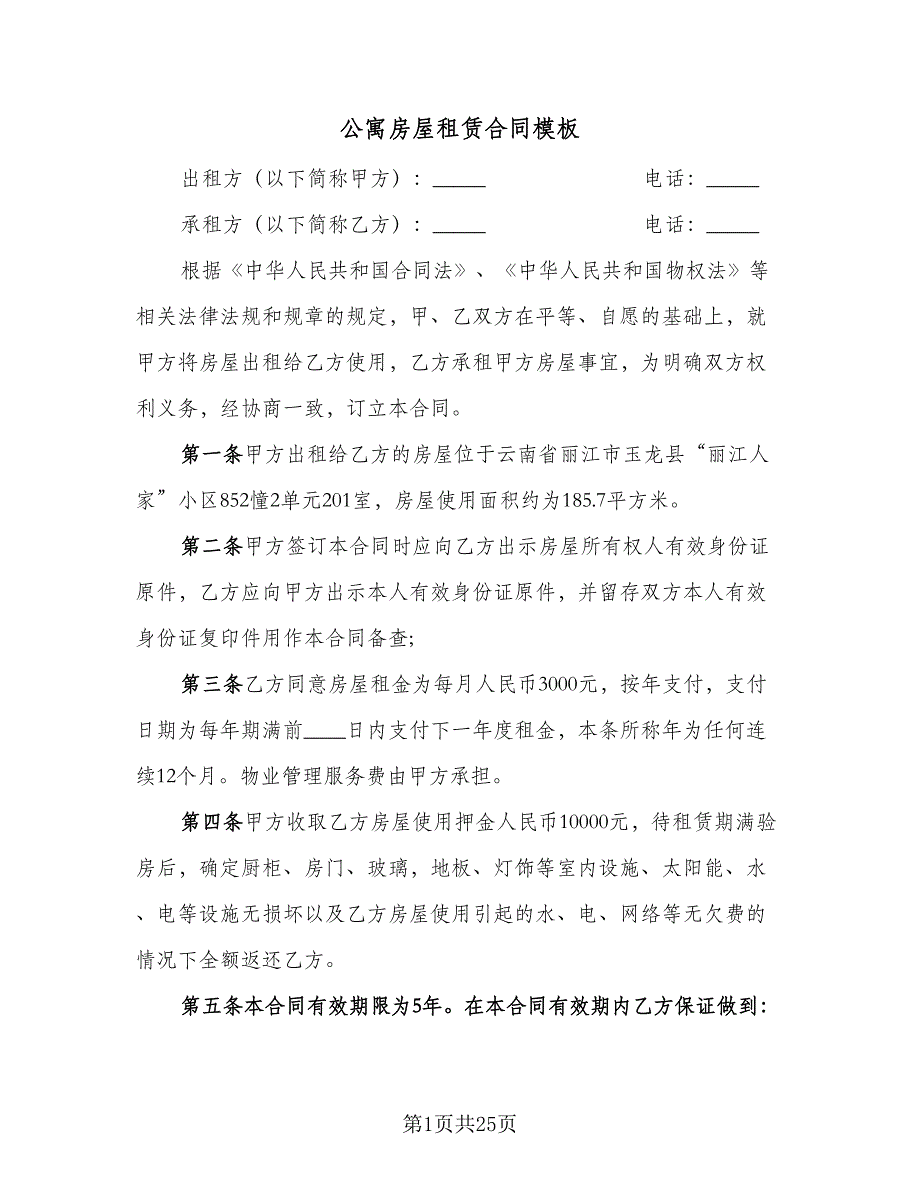 公寓房屋租赁合同模板
出租方（以下简称甲方）：_____ 电话：_____
承租方（以下简称乙方）：_____ 电话：_____
根据《中华人民共和国合同法》、《中华人民共和国物权法》等
相关法律法规和规章的规定，甲、乙双方在平等、自愿的基础上，就
甲方将房屋出租给乙方使用，乙方承租甲方房屋事宜，为明确双方权
利义务，经协商一致，订立本合同。
第一条甲方出租给乙方的房屋位于云南省丽江市玉龙县“丽江人
家”小区852憧2单元201室，房屋使用面积约为185.7平方米。
第二条甲方签订本合同时应向乙方出示房屋所有权人有效身份证
原件，乙方应向甲方出示本人有效身份证原件，并留存双方本人有效
身份证复印件用作本合同备查;
第三条乙方同意房屋租金为每月人民币3000元，按年支付，支付
日期为每年期满前____日内支付下一年度租金，本条所称年为任何连
续12个月。物业管理服务费由甲方承担。
第四条甲方收取乙方房屋使用押金人民币10000元，待租赁期满验
房后，确定厨柜、房门、玻璃，地板、灯饰等室内设施、太阳能、水
、电等设施无损坏以及乙方房屋使用引起的水、电、网络等无欠费的
情况下全额返还乙方。
第五条本合同有效期限为5年。在本合同有效期内乙方保证做到：
第1页共25页